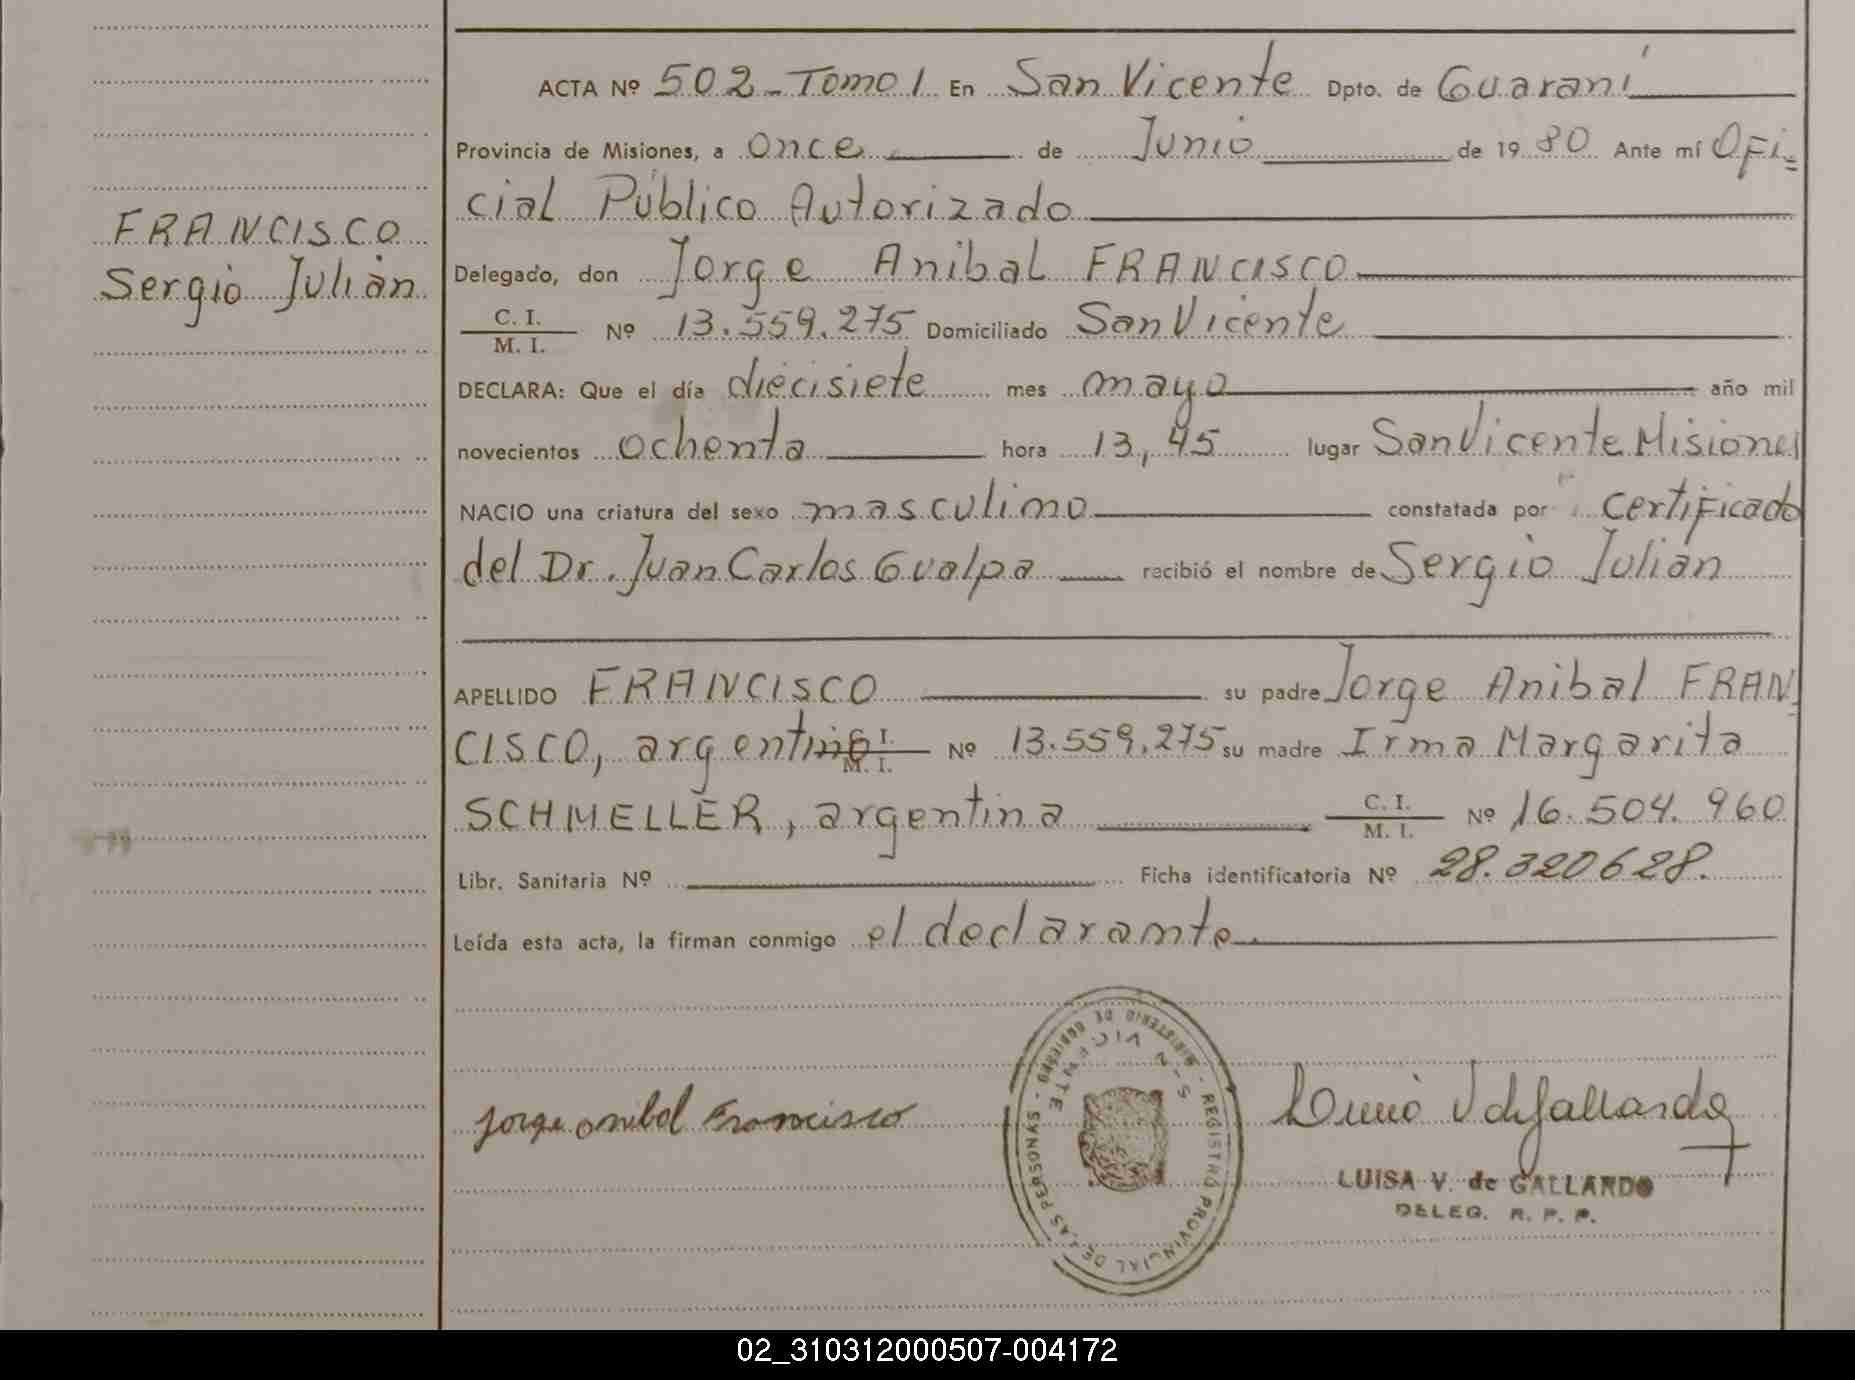 FRANCISCO
Sergio Julián
ACTA Nº 502 - Tomo 1 En San Vicente Dpto. de Guaraní
Provincia de Misiones, a once de Junio de 1980 Ante mí Ofi=
cial Público Autorizado
Delegado, don Jorge Anibal FRANCISCO
C. I.
M. I. Nº 13.559.275 Domiciliado San Vicente
DECLARA: Que el día diecisiete mes mayo año mil
novecientos ochenta hora 13,45 lugar San Vicente Misiones
NACIO una criatura del sexo masculino constatada por certificado
del Dr. Juan Carlos Gualpa recibió el nombre de Sergio Julián
APELLIDO FRANCISCO su padre Jorge Anibal FRAN=
CISCO, argentino C. I. M. I. Nº 13.559.275 su madre Irma Margarita
SCHMELLER, argentina C. I. M. I. Nº 16.504.960
Libr. Sanitaria Nº Ficha identificatoria Nº 28.320628.
Leída esta acta, la firman conmigo el declarante.
REGISTRO PROVINCIAL DE LAS PERSONAS - MINISTERIO DE GOBIERNO -
SAN VICENTE
Jorge Anibal Francisco
LUISA V. de GALLARDO
DELEG. R. P. P.
02_310312000507-004172